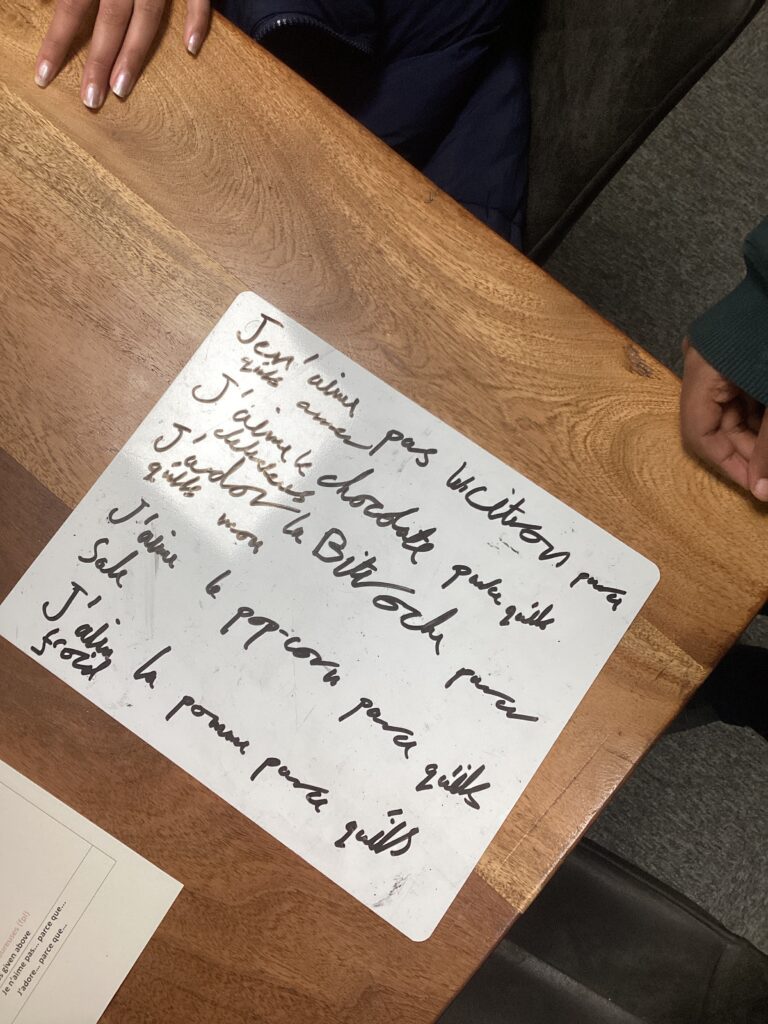 Je n'aime pas le citron parce
qu'ils amer
J'aime le chocolate parce qu'ils
delicieus
J'ador le Bitroche parce
qu'ils mon
J'aime le pop-corn parce qu'ils
Sale
J'aime la pomme parce qu'ils
froid
ureuses (fpl)
s given above
Je n'aime pas... parce que...
J'adore... parce que...